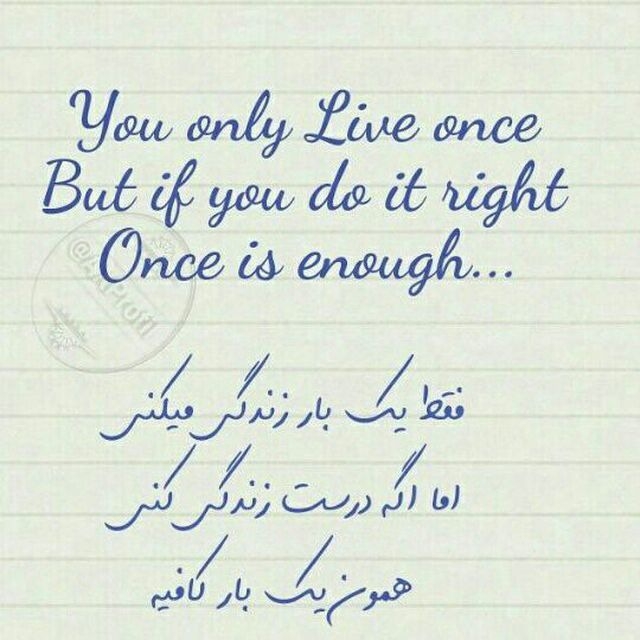 You only Live once
But if you do it right
Once is enough...
فقط یک بار زندگی میکنی
اما اگه درست زندگی کنی
همون یک بار کافیه